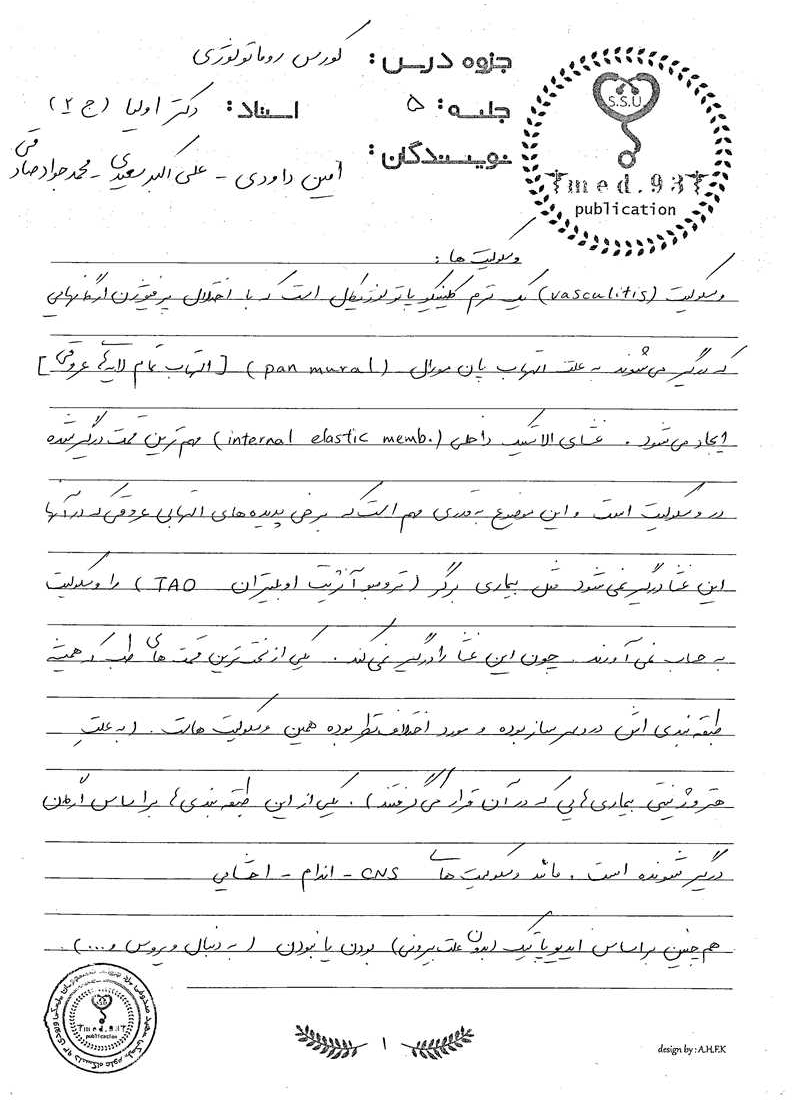 جزوه درس: کورس روماتولوژی
جلسه: ۵ استاد: دکتر اولیا (ج ۲)
نویسندگان: امین داودی - علی اکبر سعیدی - محمدجواد صادقی
S.S.U
Tmed.93T
publication
وسکولیت ها:
وسکولیت (vasculitis) یک ترم کلینیکو پاتولوژیکال است که با اختلال پرفیوژن ارگانهایی
که درگیر می‌شوند به علت التهاب پان مورال (pan mural) [التهاب تمام لایه‌های عروقی]
ایجاد می‌شود. غشای الاستیک داخلی (internal elastic memb.) مهم‌ترین قسمت درگیر شده
در وسکولیت است و این موضوع به‌قدری مهم است که برخی پدیده‌های التهابی عروقی که در آنها
این غشا درگیر نمی‌شود مثل بیماری برگر (ترومبوآنژیت اوبلیتران TAO) را وسکولیت
به حساب نمی‌آورند. چون این غشا را درگیر نمی‌کند. یکی از سخت‌ترین قسمت های طب که همیشه
طبقه‌بندی اش دردسرساز بوده و مورد اختلاف نظر بوده همین وسکولیت هاست. (به علت
هتروژنیتی بیماری‌هایی که در آن قرار می‌گرفتند). یکی از این طبقه بندی‌ها براساس ارگان
درگیر شونده است. مانند وسکولیت های CNS - اندام - احشایی
هم‌چنین براساس ایدیوپاتیک (بدون علت بیرونی) بودن یا نبودن (به دنبال ویروس و...).
S.S.U
Tmed.93T
publication
۱
design by : A.H.F.K